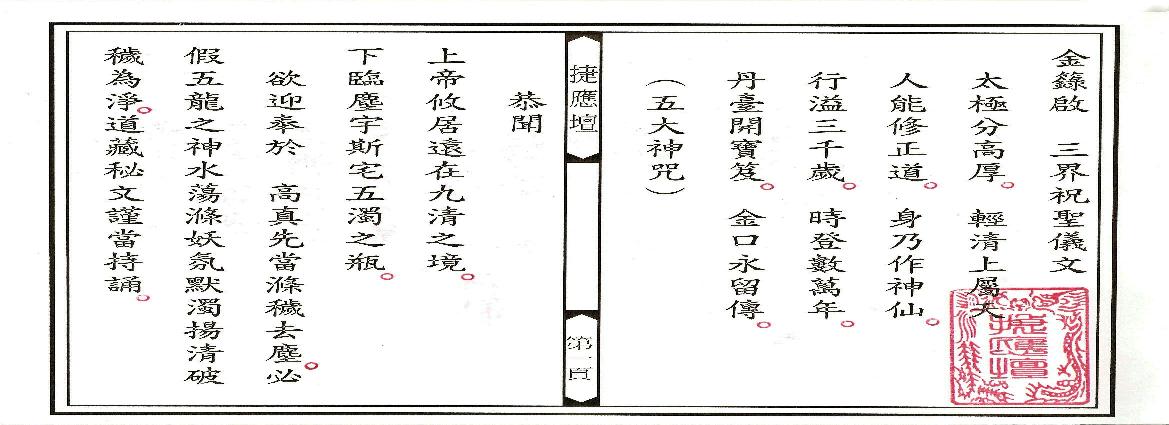 金錄啟　三界祝聖儀文
太極分高厚。　輕清上屬天
人能修正道。　身乃作神仙。
行溢三千歲。　時登數萬年。
丹臺開寶笈。　金口永留傳。
（五大神咒）
捷應壇
第一頁
恭聞
上帝攸居遠在九清之境。
下臨塵宇斯宅五濁之瓶。
欲迎奉於　高真先當滌穢去塵。必
假五龍之神水蕩滌妖氛默濁揚清破
穢為淨。道藏秘文謹當持誦。
捷應壇